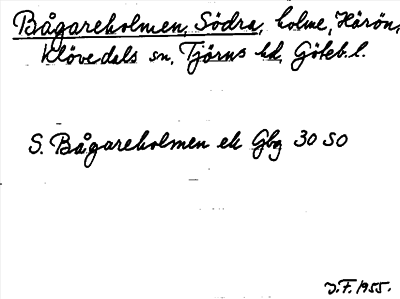 Bågareholmen, Södra, holme, Härön,
Klövedals sn, Tjörns hd, Göteb. l.
S. Bågareholmen ek Gbg 30 SO
J.F. 1955.